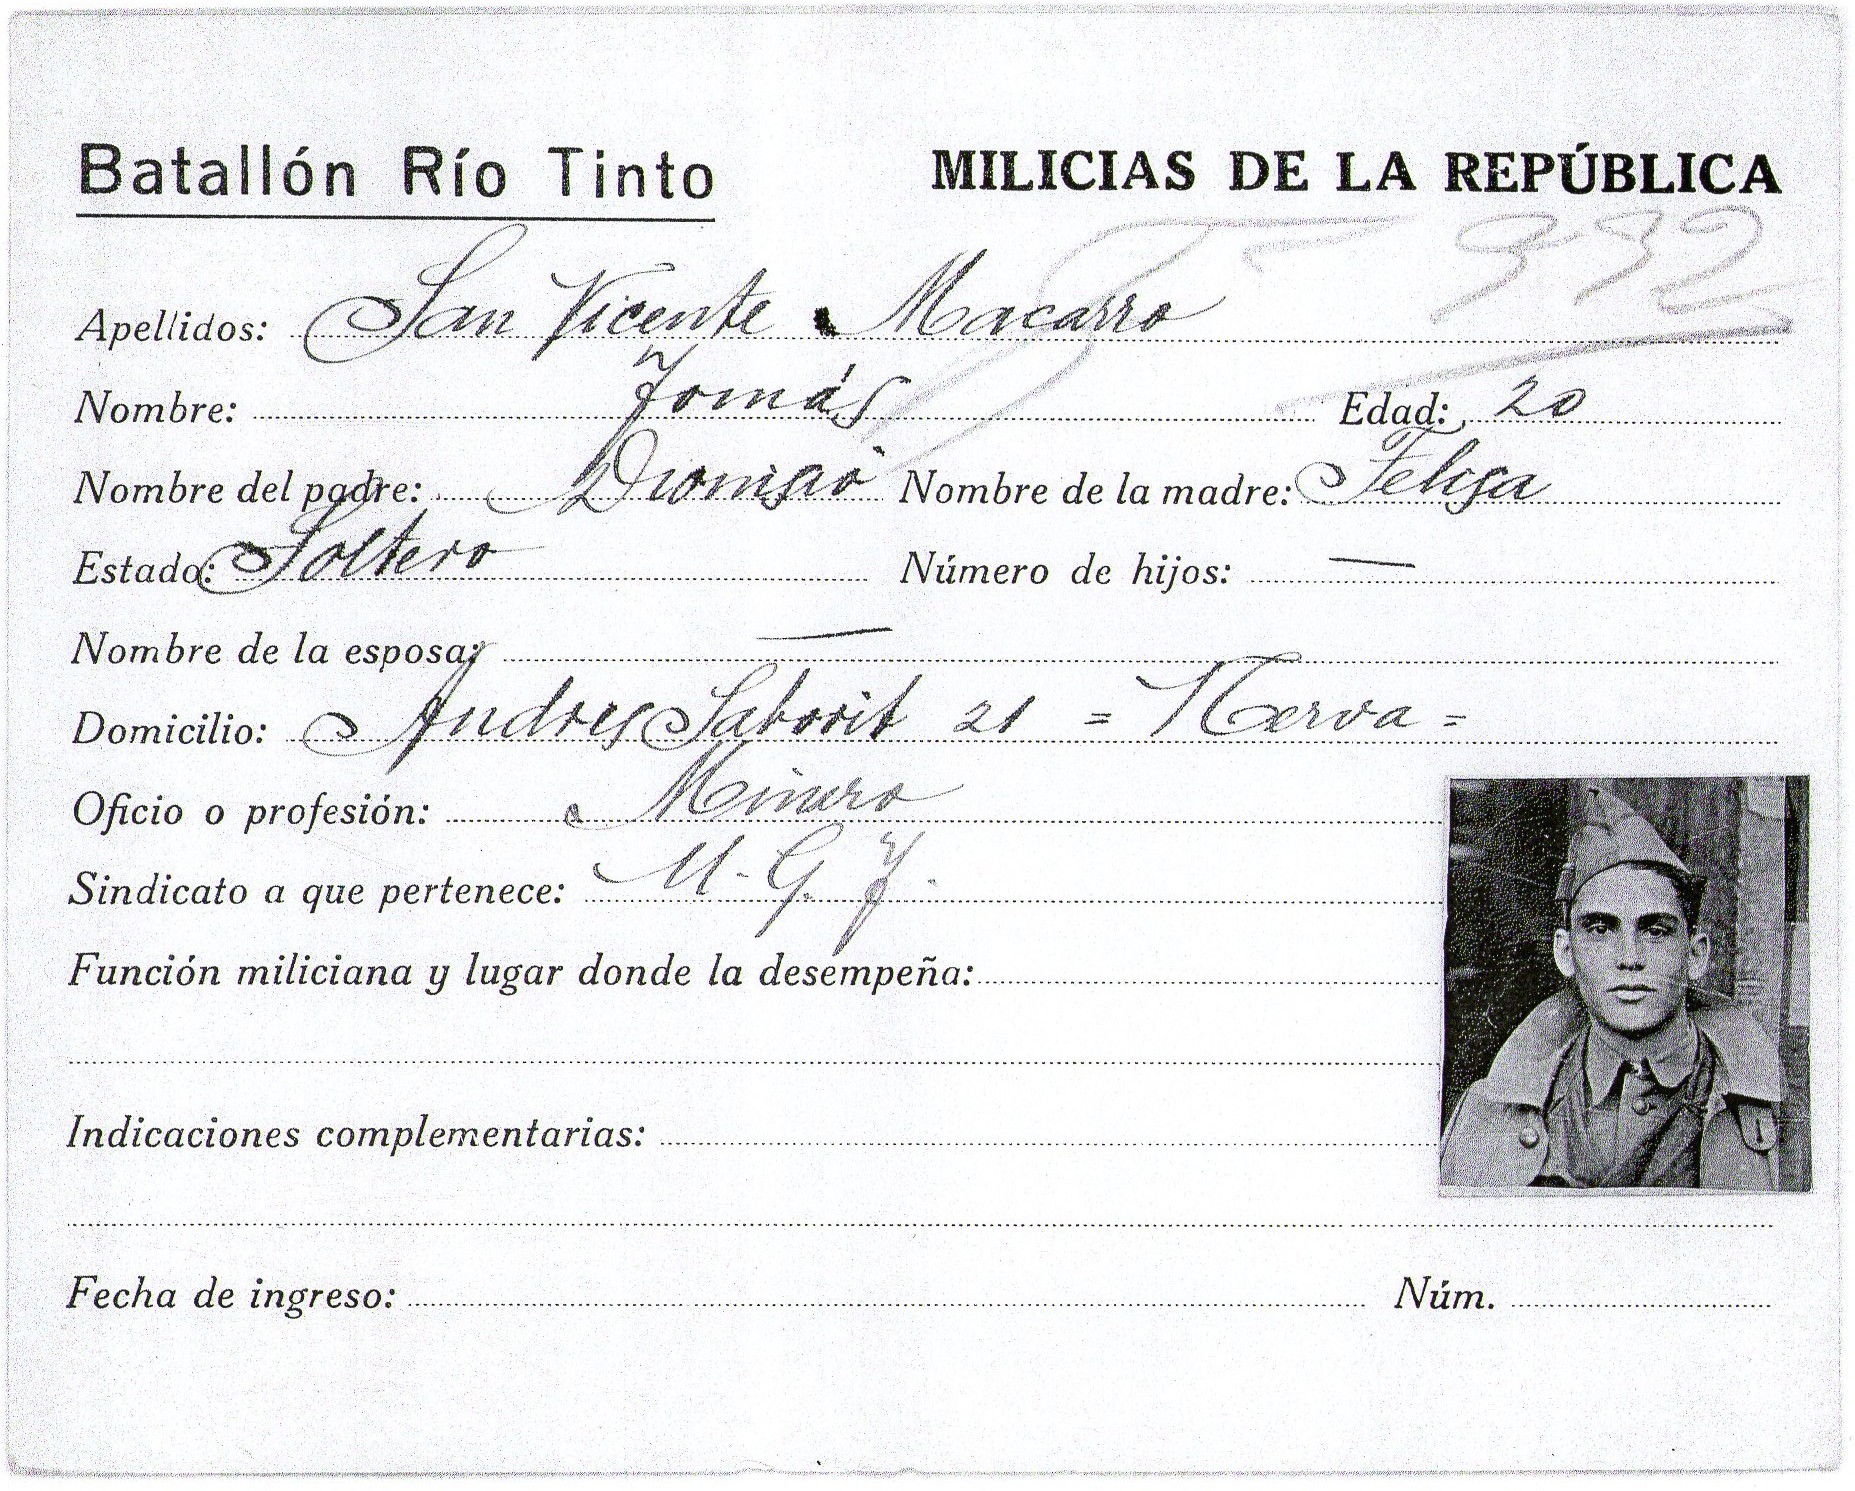 Batallón Río Tinto MILICIAS DE LA REPÚBLICA
992
Apellidos: San Vicente Macarro
Nombre: Tomás Edad: 20
Nombre del padre: Dionisio Nombre de la madre: Felisa
Estado: Soltero Número de hijos: —
Nombre de la esposa: —
Domicilio: Andres Saborit 21 = Nerva =
Oficio o profesión: Minero
Sindicato a que pertenece: U. G. T.
Función miliciana y lugar donde la desempeña:
Indicaciones complementarias:
Fecha de ingreso: Núm.